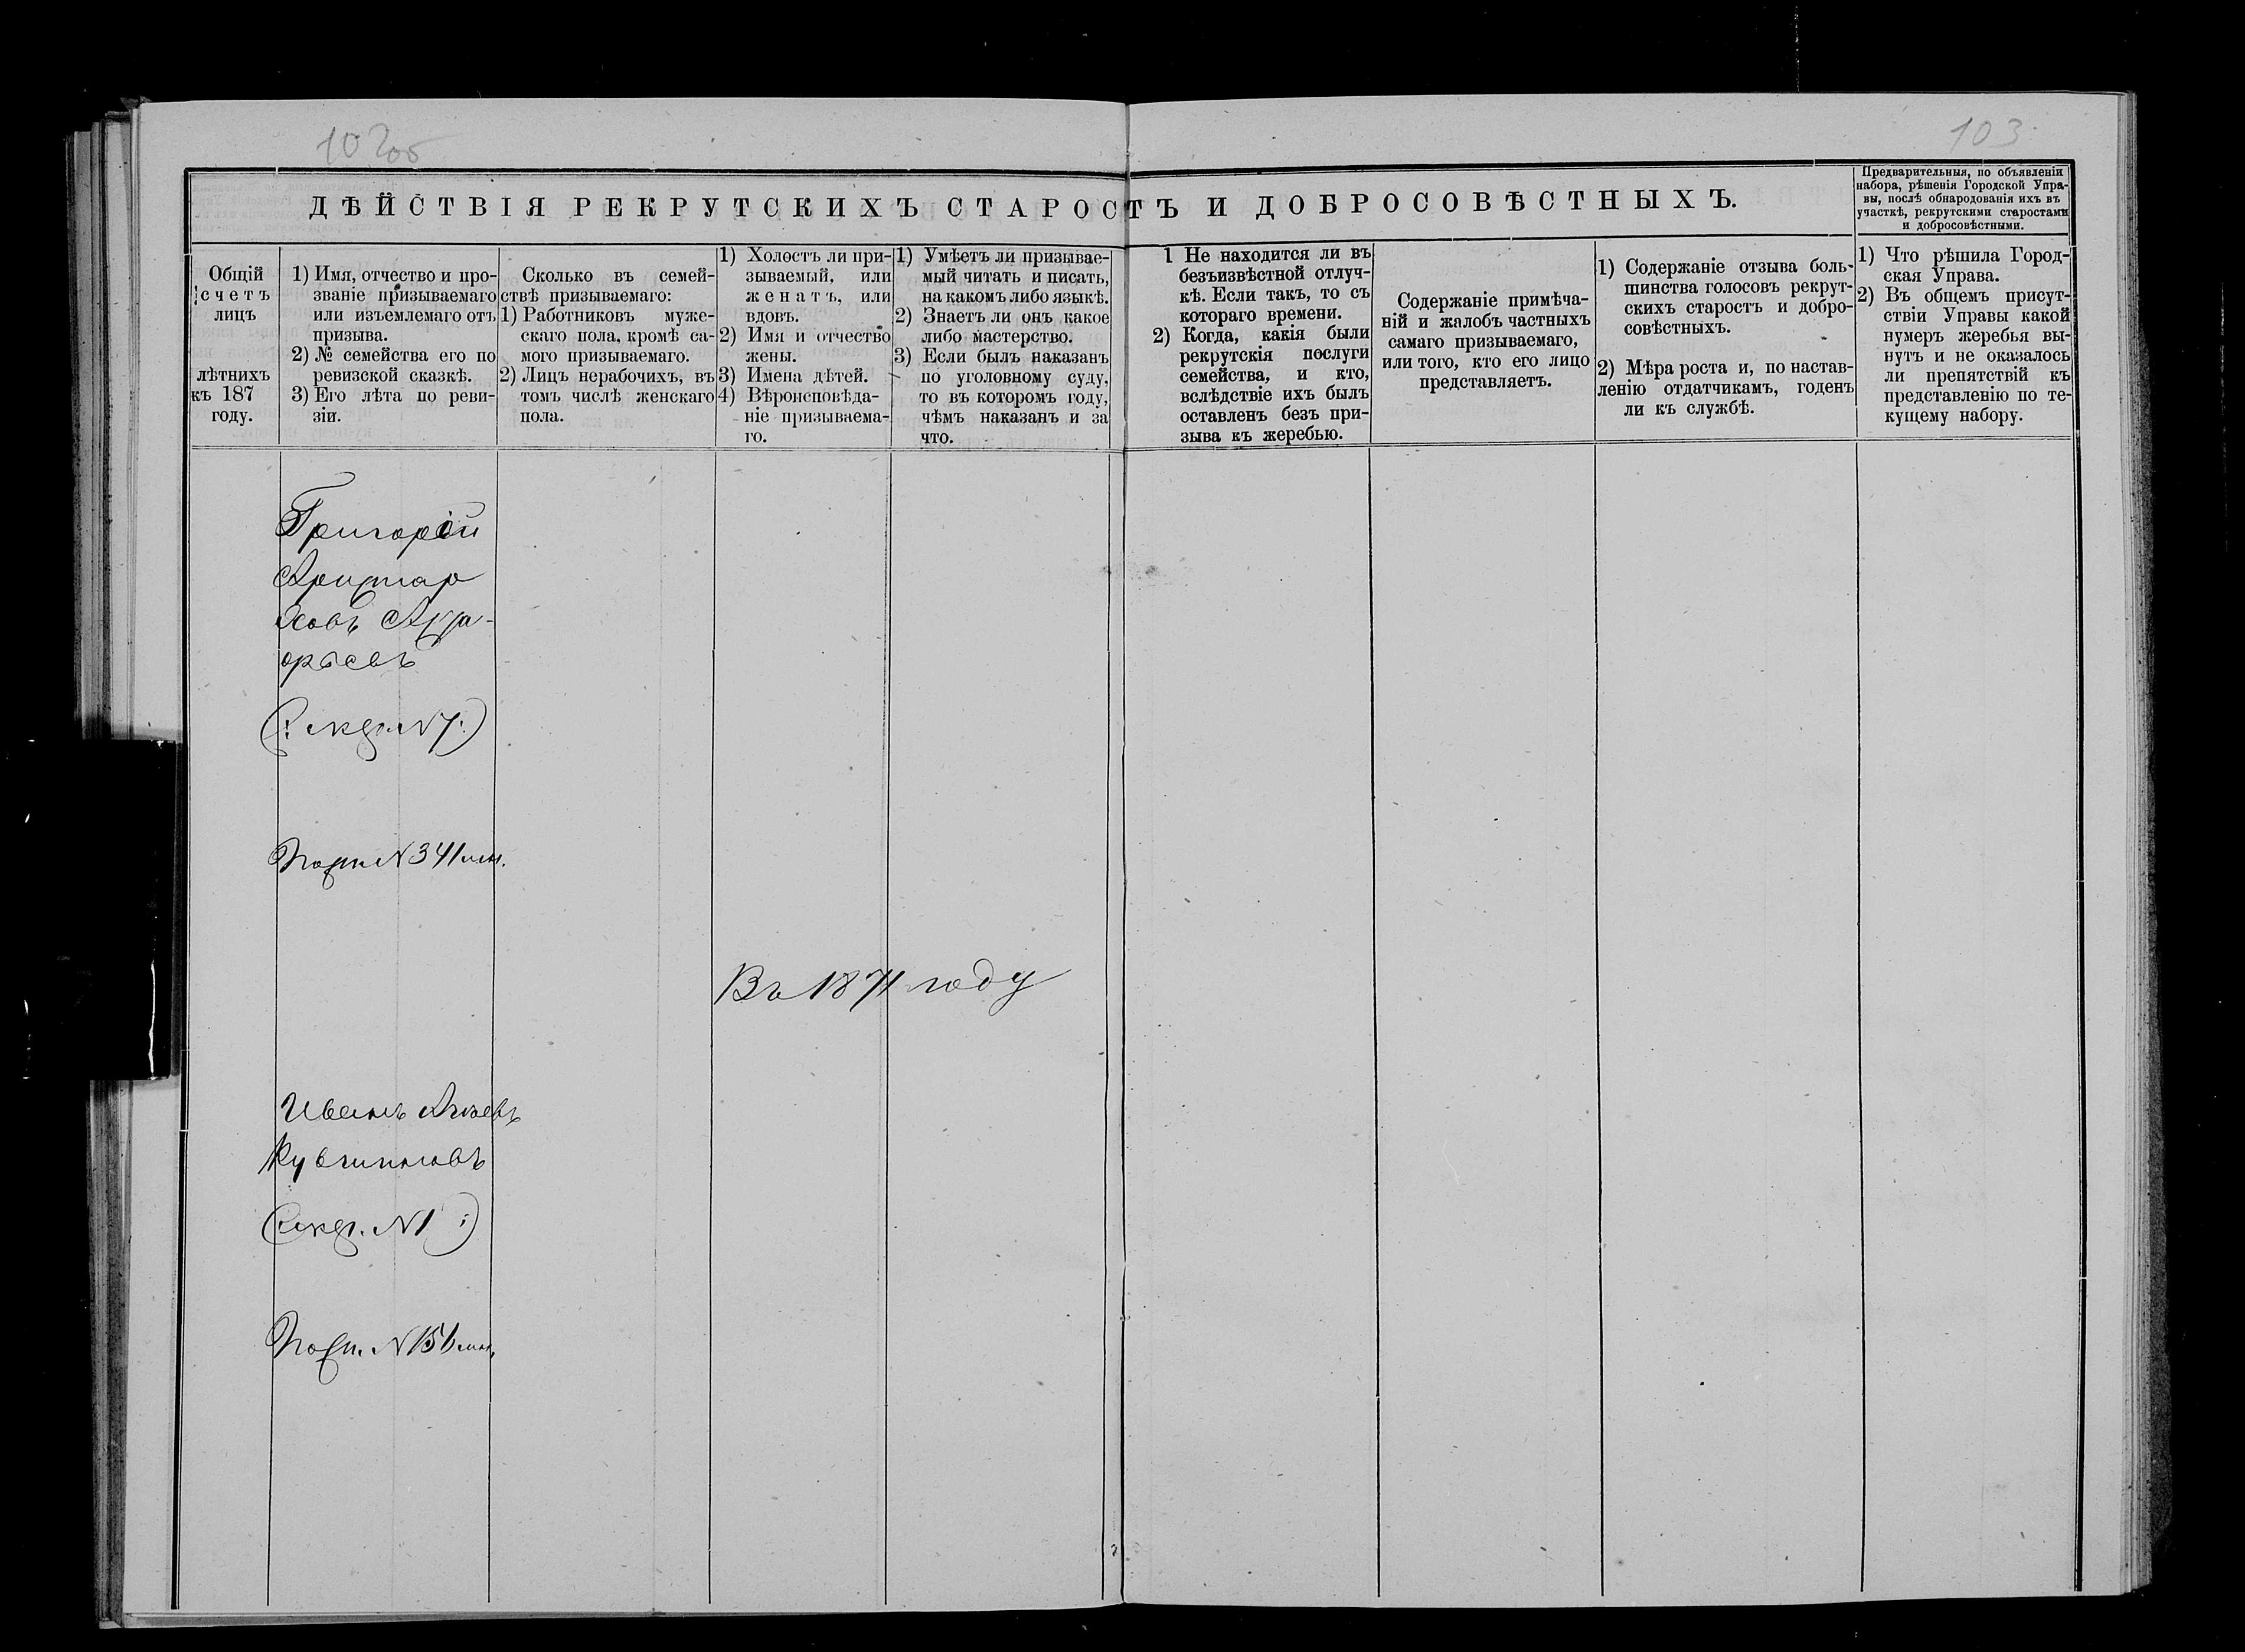 102об
103
ДѢЙСТВІЯ РЕКРУТСКИХЪ СТАРОСТЪ И ДОБРОСОВѢСТНЫХЪ.
Предварительныя, по объявленіи
набора, рѣшенія Городской Упра-
вы, послѣ обнародованія ихъ въ
участкѣ, рекрутскими старостами
и добросовѣстными.
Общій
счетъ
лицъ
лѣтнихъ
къ 187
году.
1) Имя, отчество и про-
званіе призываемаго
или изъемлемаго отъ
призыва.
2) № семейства его по
ревизской сказкѣ.
3) Его лѣта по реви-
зіи.
Сколько въ семей-
ствѣ призываемаго:
1) Работниковъ муже-
скаго пола, кромѣ са-
мого призываемаго.
2) Лицъ нерабочихъ, въ
томъ числѣ женскаго
пола.
1) Холостъ ли при-
зываемый, или
женатъ, или
вдовъ.
2) Имя и отчество
жены.
3) Имена дѣтей.
4) Вѣроисповѣда-
ніе призываема-
го.
1) Умѣетъ ли призывае-
мый читать и писать,
на какомъ либо языкѣ.
2) Знаетъ ли онъ какое
либо мастерство.
3) Если былъ наказанъ
по уголовному суду,
то въ которомъ году,
чѣмъ наказанъ и за
что.
1 Не находится ли въ
безъизвѣстной отлуч-
кѣ. Если такъ, то съ
котораго времени.
2) Когда, какія были
рекрутскія послуги
семейства, и кто,
вслѣдствіе ихъ былъ
оставленъ безъ при-
зыва къ жеребью.
Содержаніе примѣча-
ній и жалобъ частныхъ
самаго призываемаго,
или того, кто его лицо
представляетъ.
1) Содержаніе отзыва боль-
шинства голосовъ рекрут-
скихъ старостъ и добро-
совѣстныхъ.
2) Мѣра роста и, по настав-
ленію отдатчикамъ, годенъ
ли къ службѣ.
1) Что рѣшила Город-
ская Управа.
2) Въ общемъ присут-
ствіи Управы какой
нумеръ жеребья вы-
нутъ и не оказалось
ли препятствій къ
представленію по те-
кущему набору.
Григорій
Аристар
ховъ
(: N 7:)
N 341
Въ 1871 году
Иванъ
Кувшиновъ
(: N 1 :)
N 151